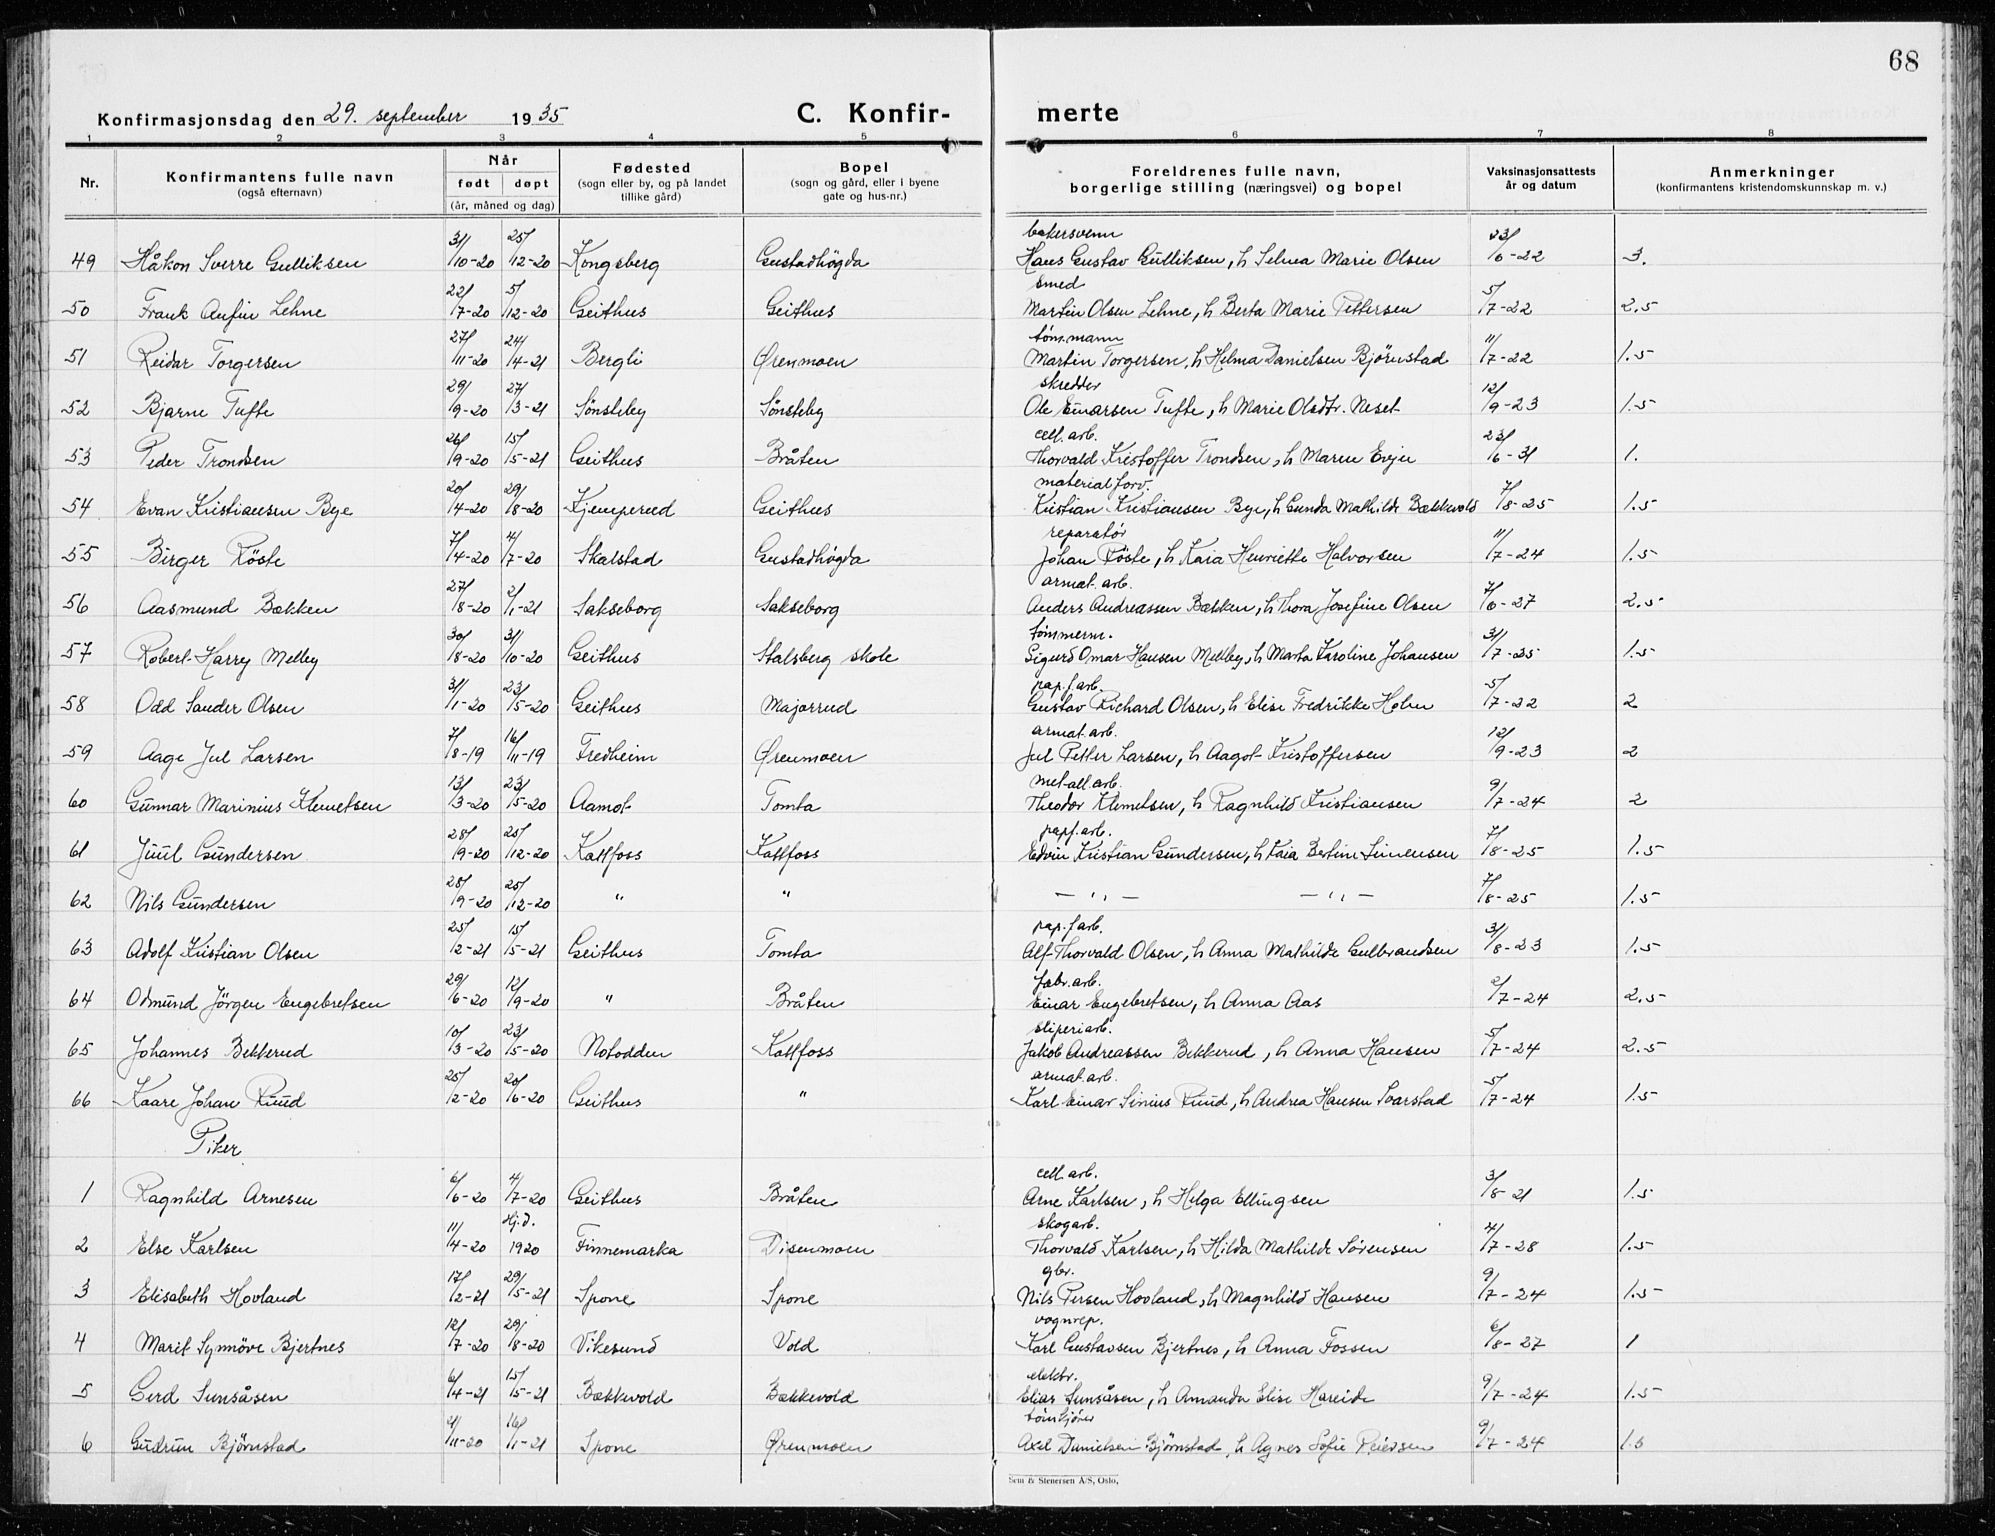 68
Konfirmasjonsdag den 29. september 1935 C. Konfir- merte
1 2 3 4 5 6 7 8
Nr. Konfirmantens fulle navn (også efternavn) Når født døpt (år, måned og dag) Fødested (sogn eller by, og på landet tillike gård) Bopel (sogn og gård, eller i byene gate og hus-nr.) Foreldrenes fulle navn, borgerlige stilling (næringsvei) og bopel Vaksinasjonsattests år og datum Anmerkninger (konfirmantens kristendomskunnskap m. v.)
bakersvenn
49 Håkon Sverre Gulliksen 31/10-20 25/12-20 Kongsberg Gustadhögda Hans Gustav Gulliksen, h Selma Marie Olsen 23/6-22 3.
smed
50 Frank Anfin Lehne 22/7-20 5/12-20 Geithus Geithus Martin Olsen Lehne, h Berta Marie Pettersen 5/7-22 2.5
tömmann
51 Reidar Torgersen 27/11-20 24/4-21 Bergli Ørenmoen Martin Torgersen, h Helma Danielsen Björnstad 11/7-22 1.5
skredder
52 Bjarne Tufte 29/9-20 27/3-21 Sönsteby Sönsteby Ole Einarsen Tufte, h Marie Olsdtr. Neset 12/9-23 1.5
cell. arb.
53 Peder Trondsen 26/9-20 15/5-21 Geithus Bråten Thorvald Kristoffer Trondsen, h Maren Evjen 23/6-31 1.
materialforv.
54 Evan Kristiansen Bye 20/4-20 29/8-20 Kjemperud Geithus Kristian Kristiansen Bye, h Gunda Mathilde Bækkevold 7/8-25 1.5
reparatör
55 Birger Röste 7/4-20 4/7-20 Skalstad Gustadhögda Johan Röste, h Kaia Henriette Halvorsen 11/7-24 1.5
armat. arb.
56 Aasmund Bækken 27/8-20 2/1-21 Sakseborg Sakseborg Anders Andreassen Bækken, h Thora Josefine Olsen 7/6-27 2.5
tömmerm.
57 Robert Harry Melby 30/8-20 31/10-20 Geithus Stalsberg skole Sigurd Omar Hansen Melby, h Marta Karoline Johansen 31/7-25 1.5
pap.f.arb.
58 Odd Sander Olsen 31/1-20 23/5-20 Geithus Majorrud Gustav Richard Olsen, h Elise Fredrikke Holm 5/7-22 2
armat. arb.
59 Aage Jul Larsen 7/8-19 16/11-19 Fredheim Ørenmoen Jul Petter Larsen, h Aagot Kristoffersen 12/9-23 2
met-all. arb.
60 Gunnar Marinius Klemetsen 13/3-20 23/5-20 Aamot Tomta Theodor Klemetsen, h Ragnhild Kristiansen 9/7-24 2
papf. arb.
61 Juul Gundersen 28/9-20 25/12-20 Katfoss Katfoss Edvin Kristian Gundersen, h Kaia Bertine Simensen 7/8-25 1.5
62 Nils Gundersen 28/9-20 25/12-20 " " — " — — " — 7/8-25 1.5
pap.f arb.
63 Adolf Kristian Olsen 25/2-21 15/5-21 Geithus Tomta Alf Thorvald Olsen, h Anna Mathilde Gulbrandsen 31/8-23 1.5
fabr. arb.
64 Odmund Jörgen Engebretsen 29/6-20 12/9-20 " Bråten Einar Engebretsen, h Anna Aas 2/7-24 2.5
sliperiarb.
65 Johannes Bekkerud 10/3-20 23/5-20 Notodden Katfoss Jakob Andreassen Bekkerud, h Anna Hansen 5/7-24 2.5
armat. arb.
66 Kaare Johan Ruud 25/2-20 20/6-20 Geithus " Karl Einar Sinius Ruud, h Andrea Hansen Svarstad 5/7-24 1.5
Piker
cell. arb.
1 Ragnhild Arnesen 6/6-20 4/7-20 Geithus Bråten Arne Karlsen, h Helga Ellingsen 3/8-21 1.5
skogarb.
2 Else Karlsen 11/4-20 Hj.d. 1920 Finnemarka Disenmoen Thorvald Karlsen, h Hilda Mathilde Sørensen 4/7-28 1.5
gbr.
3 Elisabeth Hovland 17/2-21 29/5-21 Spone Spone Nils Persen Hovland, h Magnhild Hansen 9/7-24 1.5
vognrep.
4 Marit Synnöve Bjertnes 12/7-20 29/8-20 Vikesund Vold Karl Gustavsen Bjertnes, h Anna Fossen 6/8-27 1
elektr.
5 Gerd Sunsåsen 6/4-21 15/5-21 Bækkevold Bækkevold Elias Sunsåsen, h Amanda Elise Hareide 9/7-24 1.5
6 Gudrun Björnstad 4/11-20 16/1-21 Spone Ørenmoen Axel Danielsen Björnstad, h Agnes Sofie Reiersen 9/7-24 1.5
Sem & Stenersen A/S, Oslo.